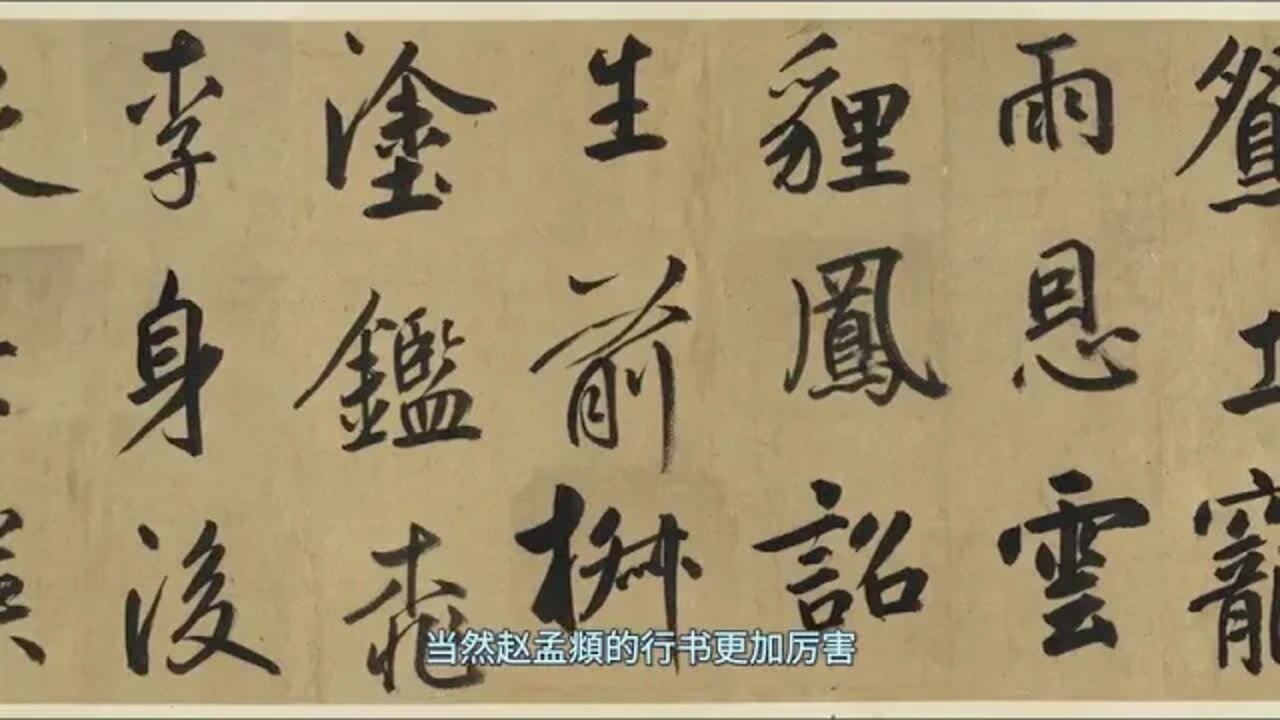 雨恩雲
貍鳳詔
生前
塗鑑桃
李身後
当然赵孟頫的行书更加厉害